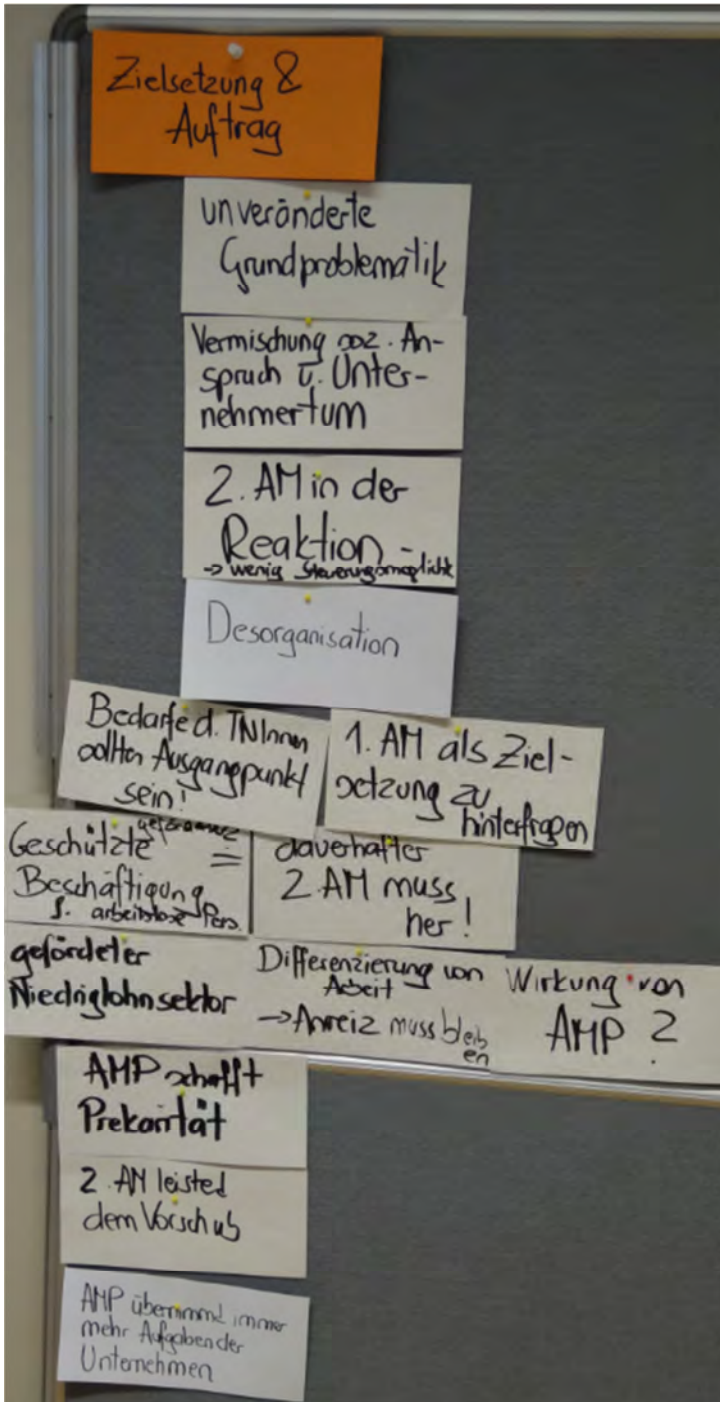 Zielsetzung &
Auftrag
unveränderte
Grundproblematik
Vermischung soz. An-
spruch u. Unter-
nehmertum
2. AM in der
Reaktion -
-> wenig Steuerungsmöglichk
Desorganisation
Bedarfe d. TNInnen
sollten Ausgangpunkt
sein!
1. AM als Ziel-
setzung zu
hinterfragen
Geschützte
Beschäftigung =
f. arbeitslose Pers.
dauerhafter
2. AM muss
her!
geförderter
Niedriglohnsektor
Differenzierung von
Arbeit
-> Anreiz muss bleib
en
Wirkung von
AMP ?
AMP schafft
Prekarität
2. AM leisted
dem Vorschub
AMP übernimmt immer
mehr Aufgaben der
Unternehmen